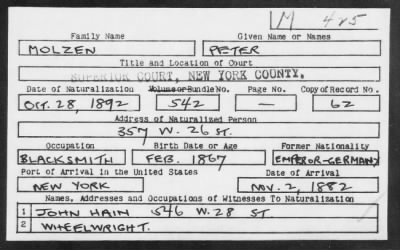 M 425
Family Name Given Name or Names
MOLZEN PETER
Title and Location of Court
SUPERIOR COURT, NEW YORK COUNTY.
Date of Naturalization Volume or Bundle No. Page No. Copy of Record No.
OCT. 28, 1892 542 — 62
Address of Naturalized Person
357 W. 26 ST.
Occupation Birth Date or Age Former Nationality
BLACKSMITH FEB. 1867 EMPEROR-GERMANY
Port of Arrival in the United States Date of Arrival
NEW YORK NOV. 2, 1882
Names, Addresses and Occupations of Witnesses To Naturalization
1 JOHN HAIN 546 W. 28 ST
2 WHEELWRIGHT.